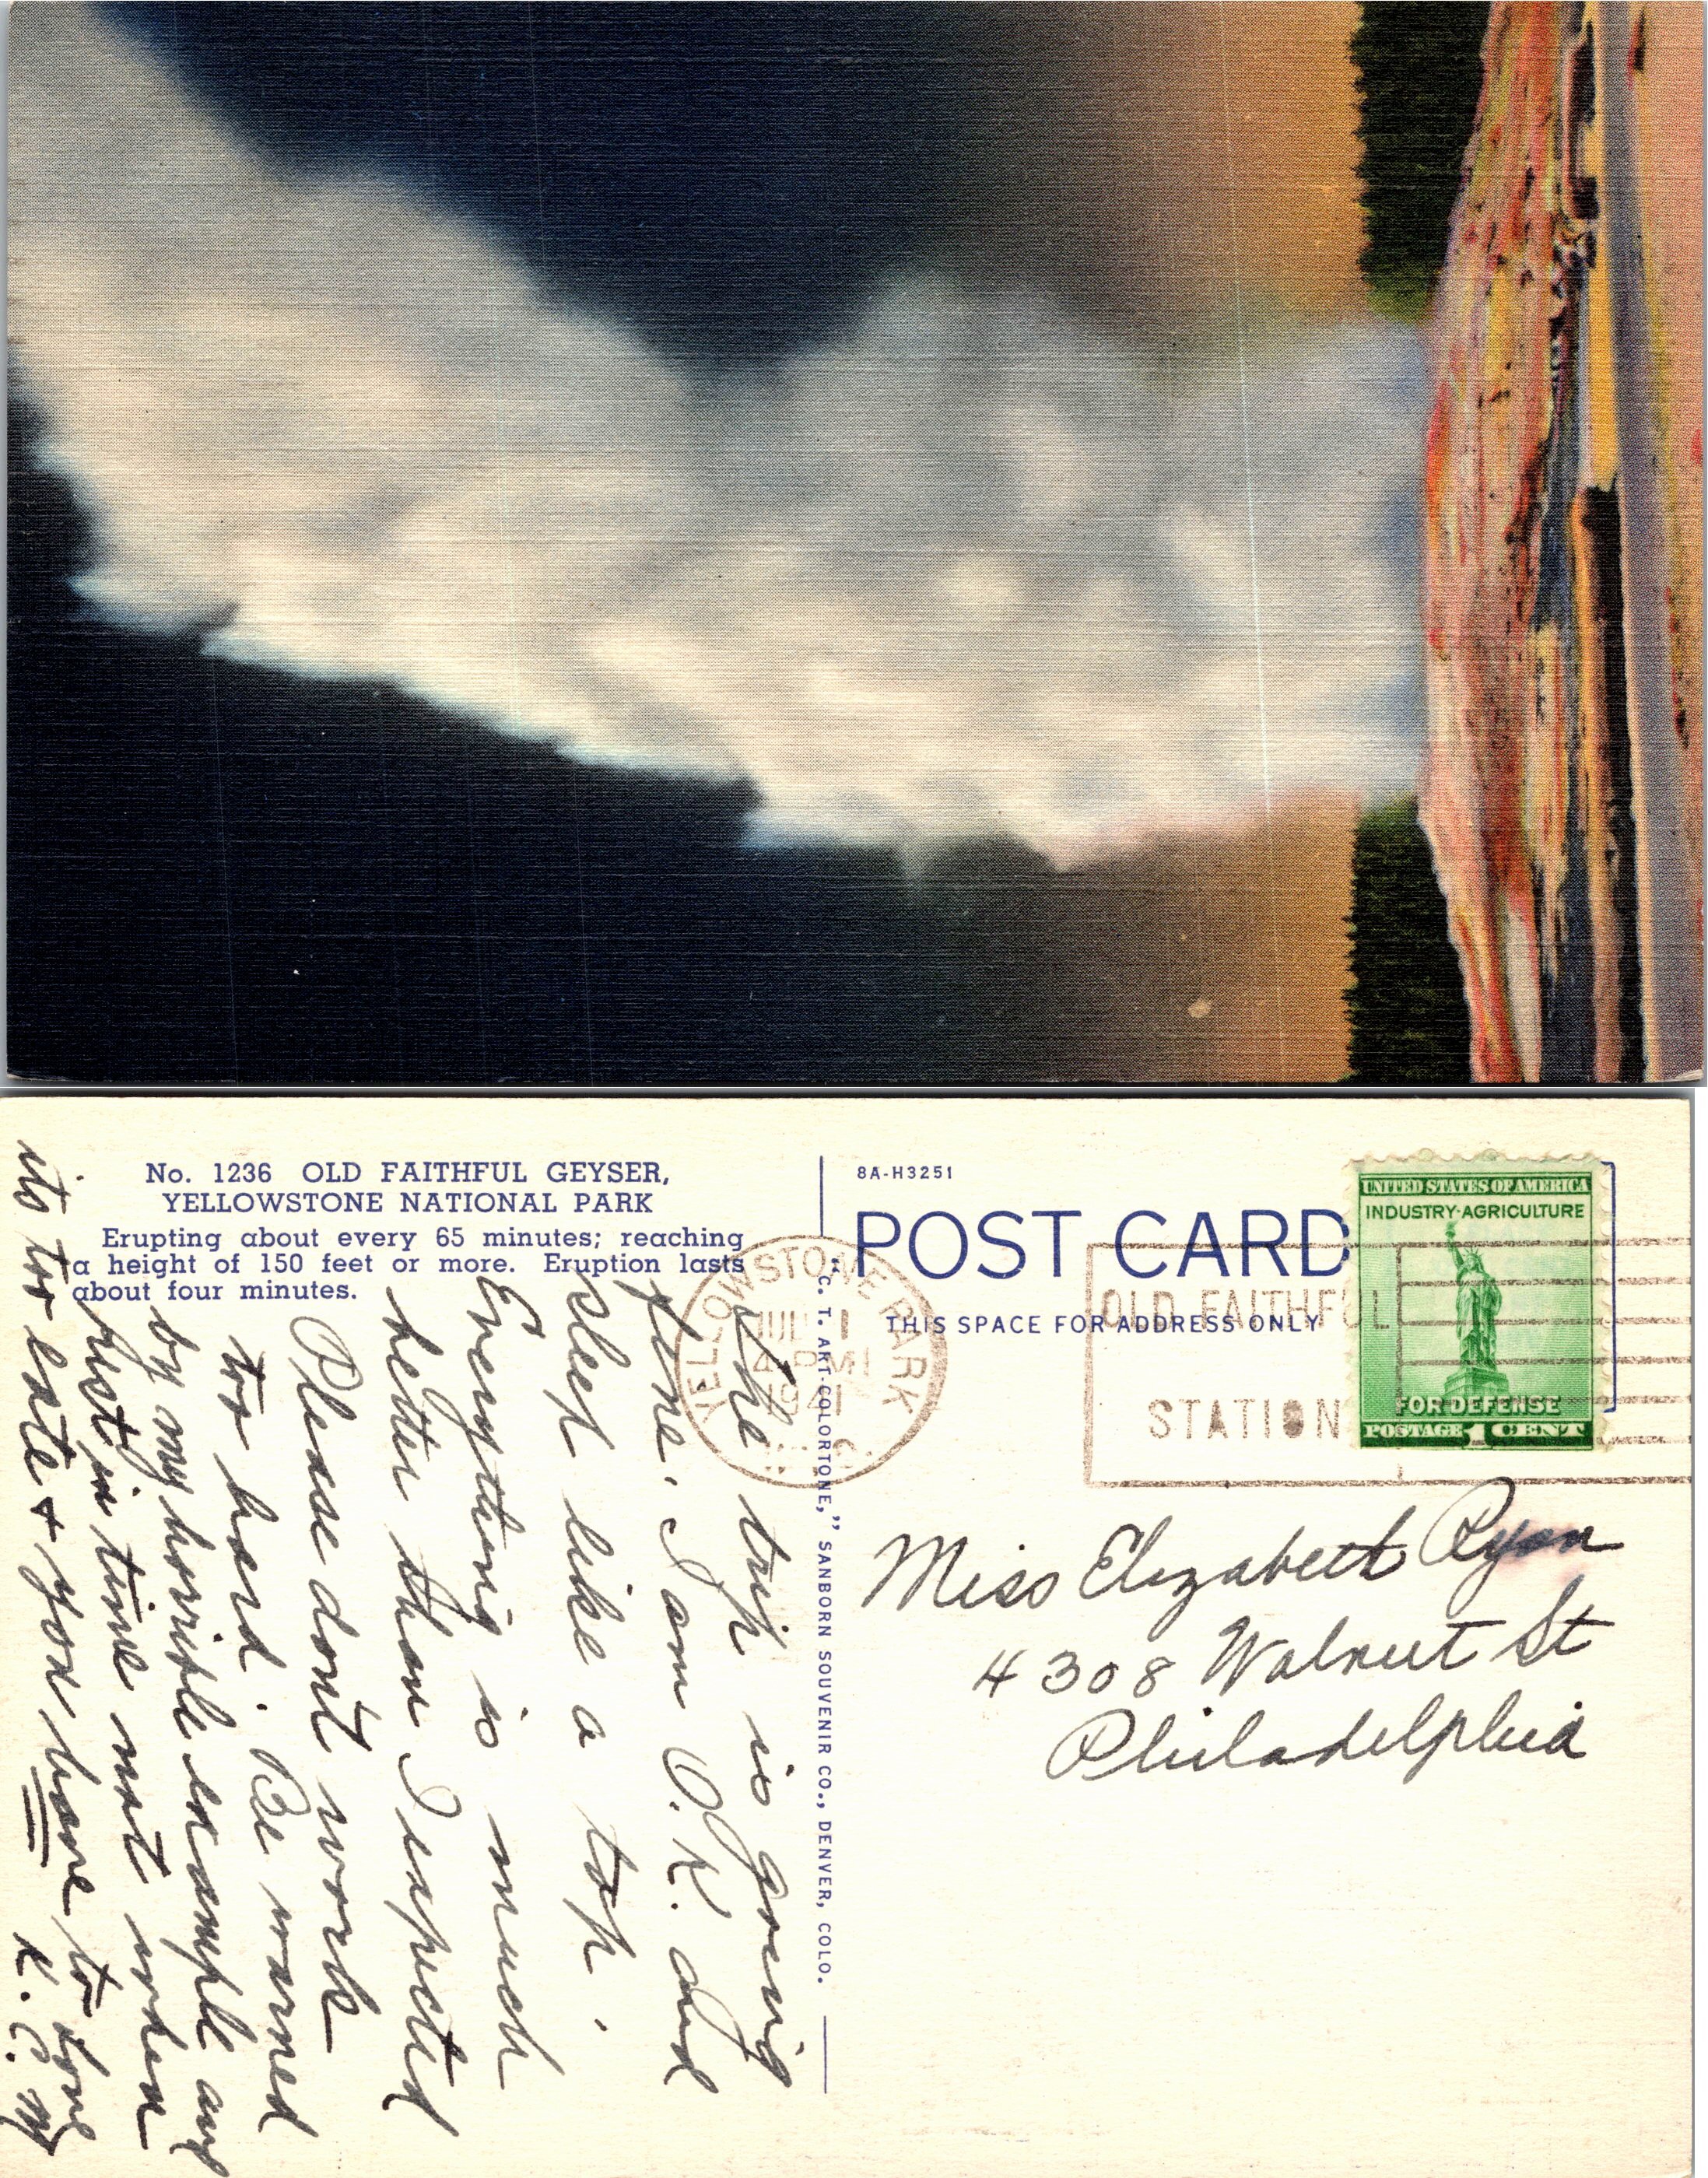 No. 1236 OLD FAITHFUL GEYSER,
YELLOWSTONE NATIONAL PARK
Erupting about every 65 minutes; reaching
a height of 150 feet or more. Eruption lasts
about four minutes.
The trip is going
fine. I am O.K. and
sleep like a top.
Everything is much
better than I expected
Please dont work
too hard. Be warned
by my horrible example and
rest in time not when
its too late & you have to
Love
K. C. M
"C. T. ART-COLORTONE," SANBORN SOUVENIR CO., DENVER, COLO.
8A-H3251
POST CARD
THIS SPACE FOR ADDRESS ONLY
YELLOWSTONE PARK
JUL 1
4 PM
1941
OLD FAITHFUL
STATION
UNITED STATES OF AMERICA
INDUSTRY·AGRICULTURE
FOR DEFENSE
POSTAGE 1 CENT
Miss Elizabeth Ryan
4308 Walnut St
Philadelphia